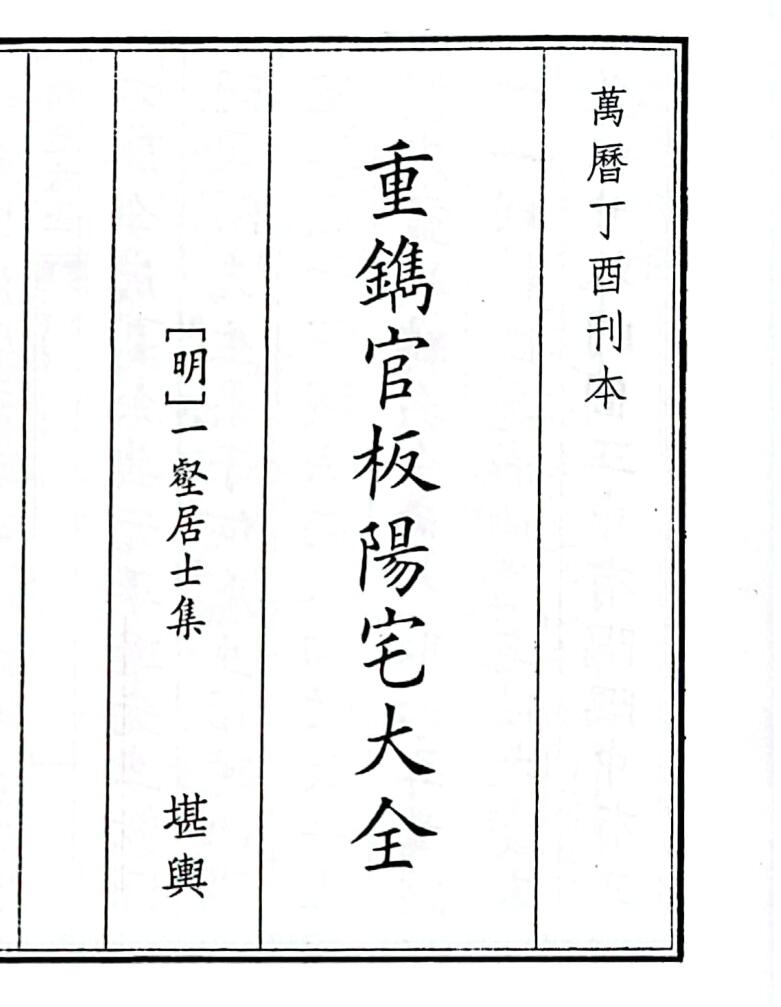 萬曆丁酉刊本
重鐫官板陽宅大全
［明］一壑居士集
堪輿